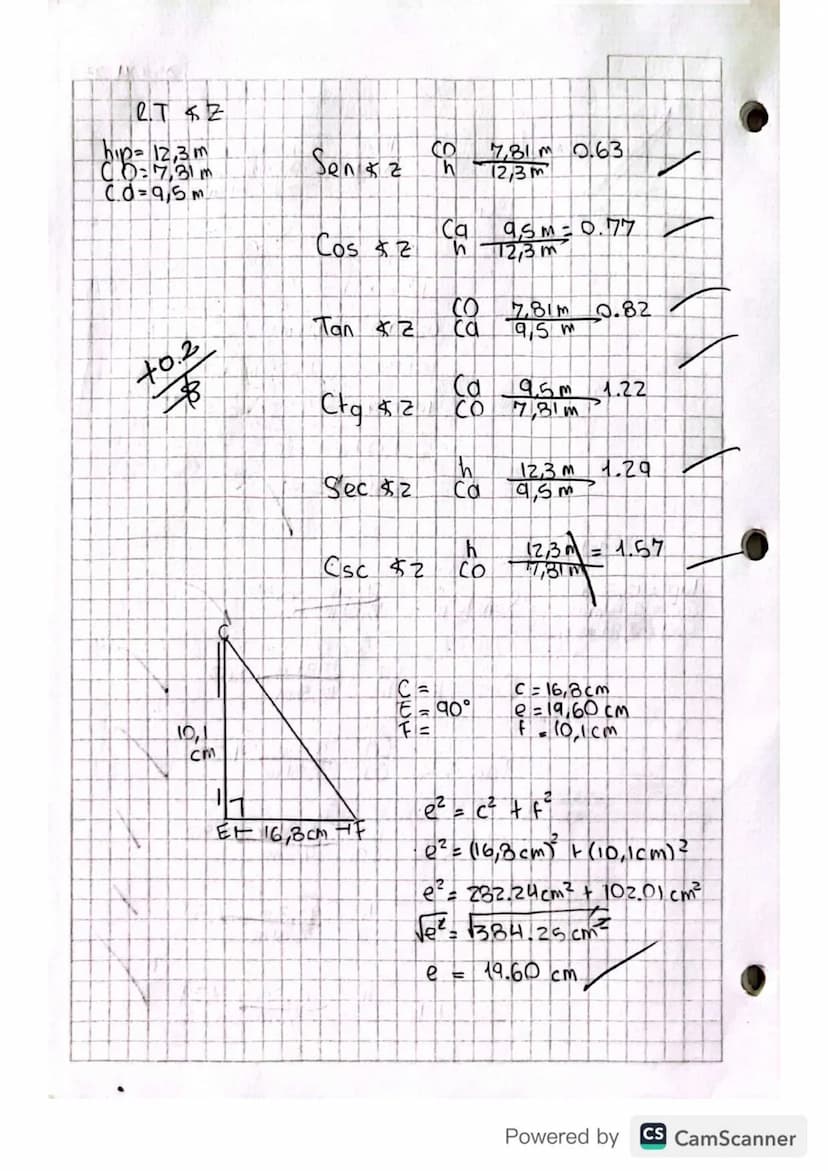 R.T ∡ Z
hip= 12,3 m
C.O=7,81 m
C.a=9,5 m
Sen ∡ z co/h 7,81 m/12,3 m 0.63
Cos ∡ z Ca/h 9,5 m/12,3 m = 0.77
Tan ∡ z CO/ca 7,81m/9,5 m 0.82
+0.2
Ctg ∡ z Ca/CO 9,5m/7,81m 1.22
Sec ∡ z h/Ca 12,3 m/9,5 m 1.29
Csc ∡ z h/CO 12,3 m/7,81 m = 1.57
C
C = C = 16,8cm
E = 90° e = 19,60 cm
F = f = 10,1cm
10,1
cm
E⊢ 16,8cm ⊣F
e² = c² + f²
e² = (16,8cm)² + (10,1cm)²
e² = 282.24cm² + 102.01 cm²
√e² = √384.25 cm²
e = 19.60 cm
Powered by CS CamScanner